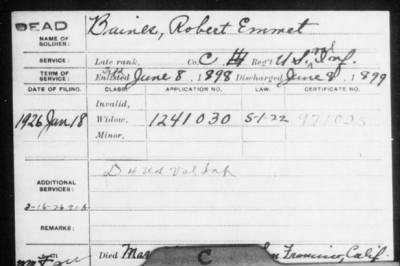 DEAD
NAME OF SOLDIER: Baines, Robert Emmet
SERVICE: Late rank, Co. C, Reg't U.S. Inf.
TERM OF SERVICE: Enlisted June 8, 1898 Discharged June 8, 1899
DATE OF FILING. CLASS. APPLICATION NO. LAW. CERTIFICATE NO.
Invalid,
1926 Jan 18 Widow, 1241030 5-1-22
Minor,
ADDITIONAL SERVICES: D 4 U.S. Vol Inf
REMARKS:
Died Mar San Francisco, Calif.
C